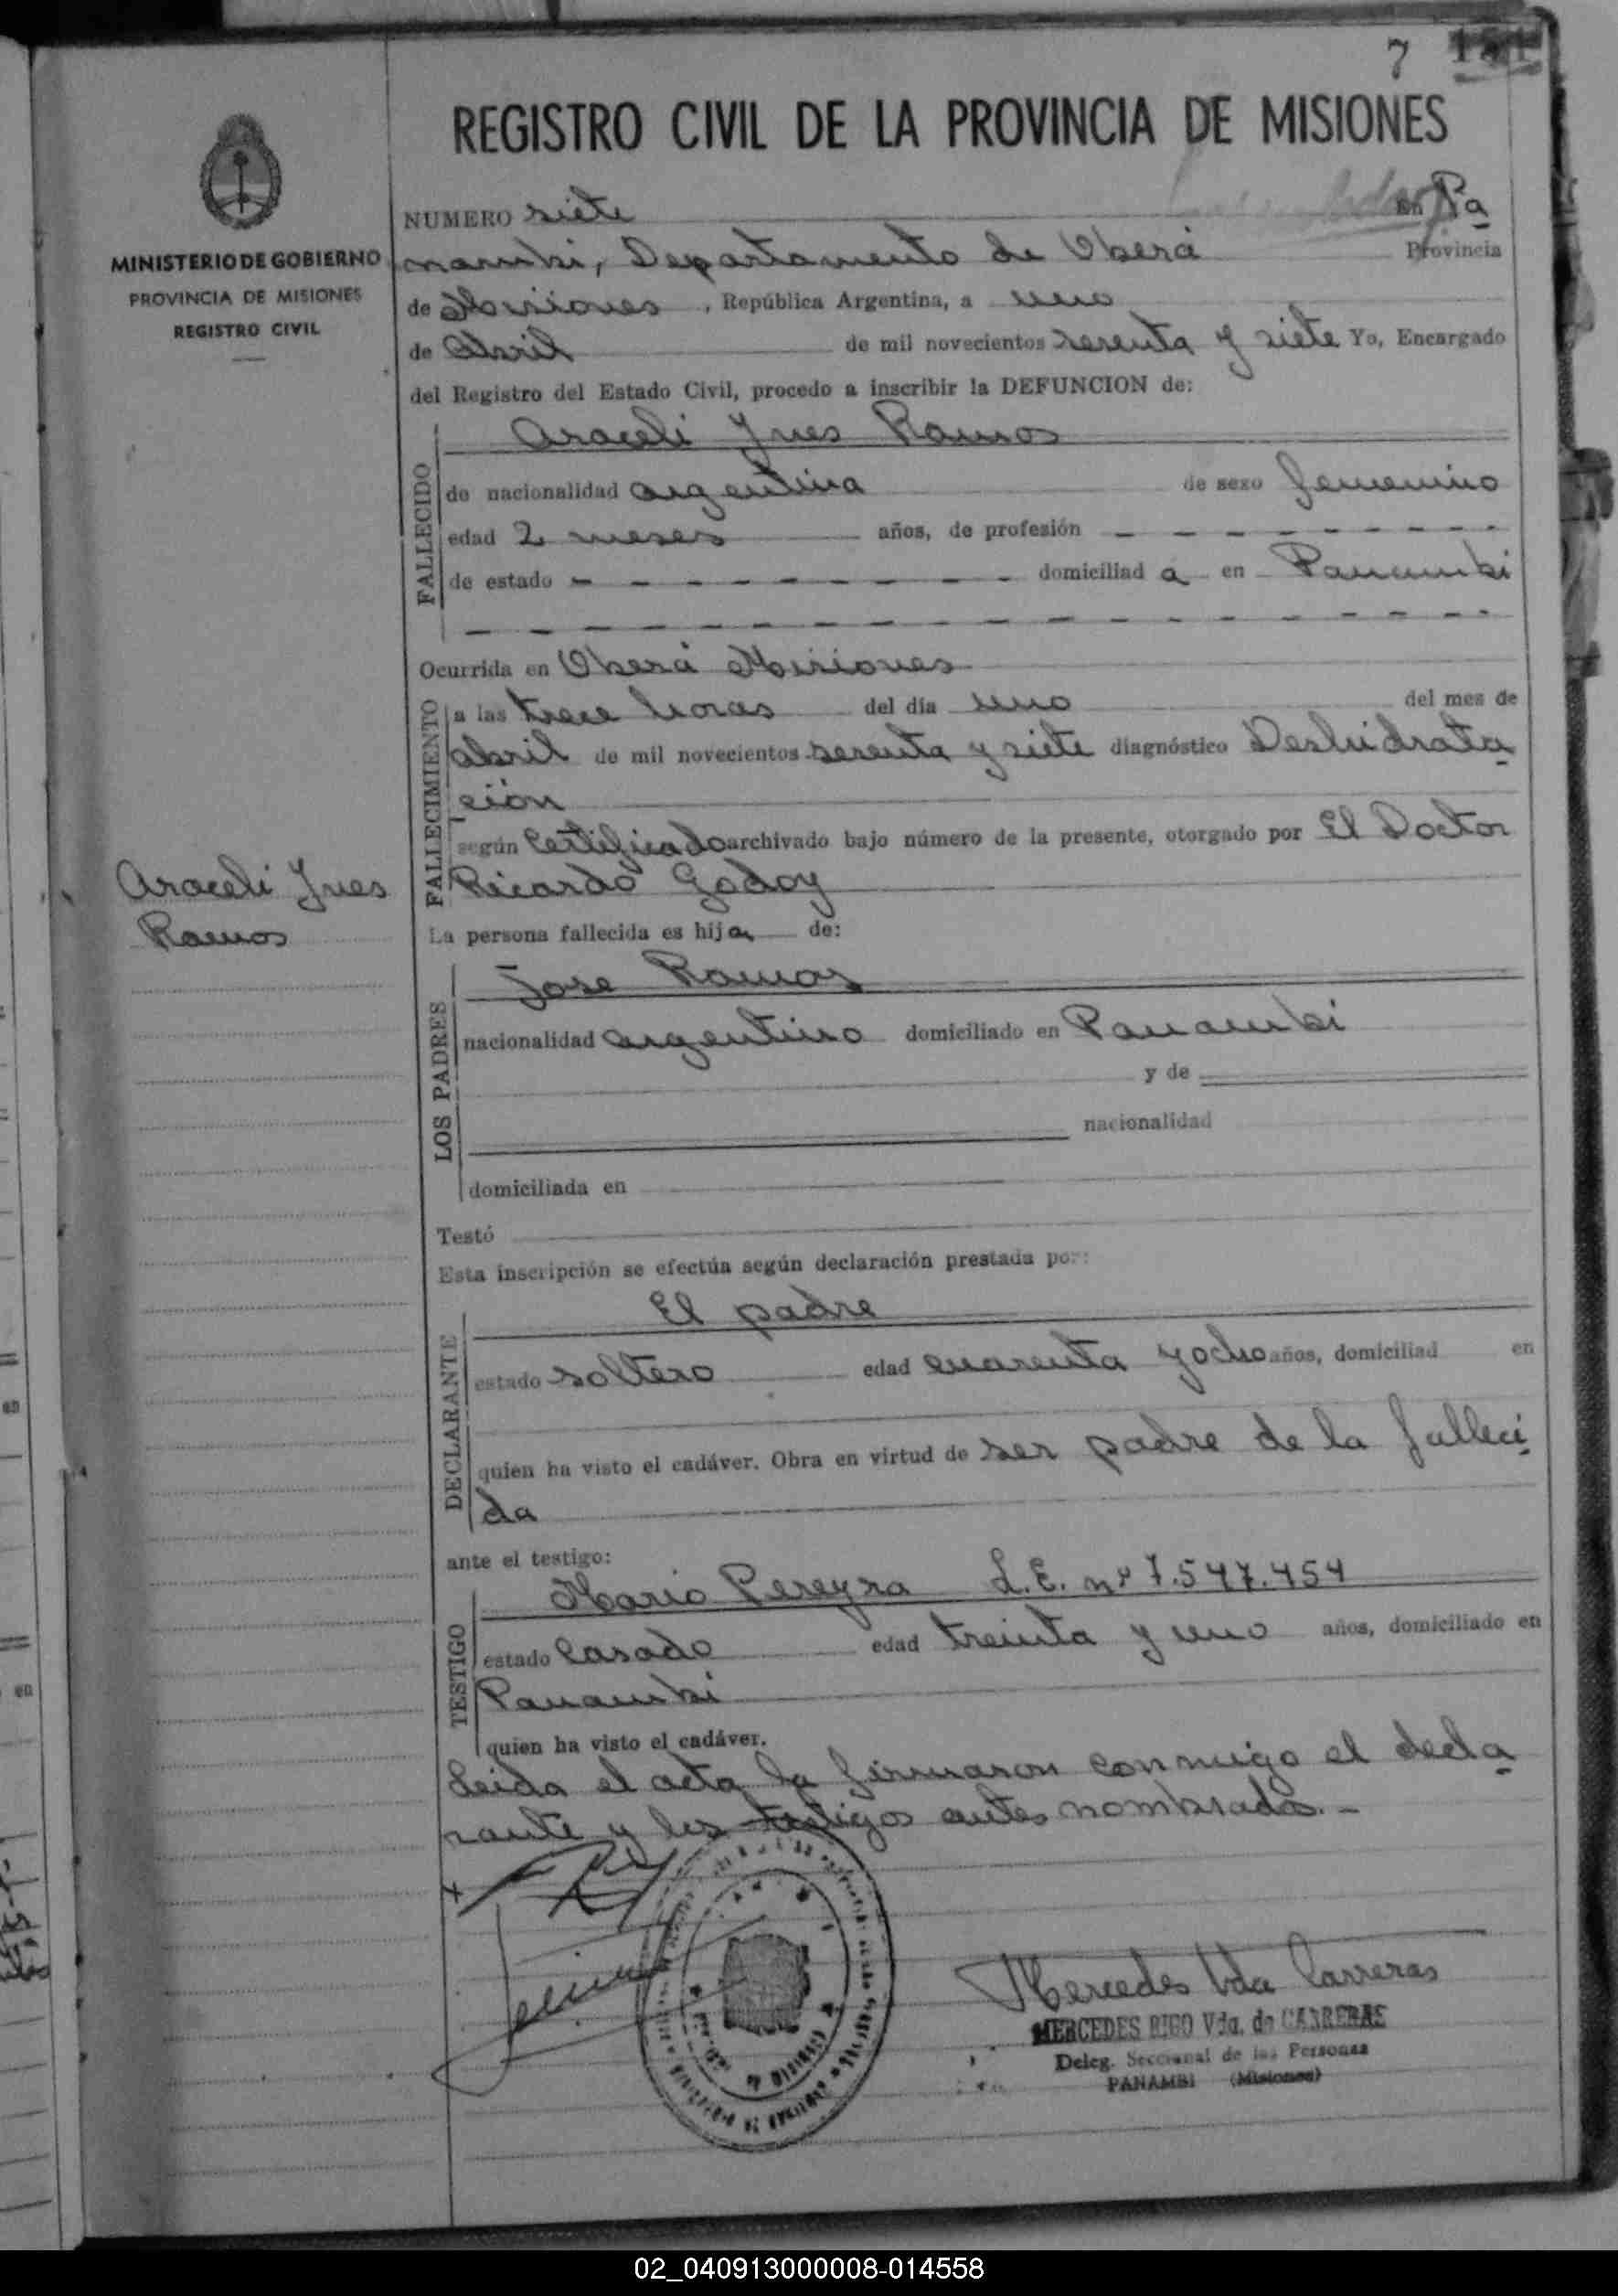 7 151
REGISTRO CIVIL DE LA PROVINCIA DE MISIONES
MINISTERIO DE GOBIERNO
PROVINCIA DE MISIONES
REGISTRO CIVIL
NUMERO siete en Pa
nambi, Departamento de Oberá Provincia
de Misiones, República Argentina, a uno
de Abril de mil novecientos sesenta y siete Yo, Encargado
del Registro del Estado Civil, procedo a inscribir la DEFUNCION de:
Araceli Ynes Ramos
FALLECIDO
de nacionalidad argentina de sexo femenino
edad 2 meses años, de profesión - - - - - - - -
de estado - - - - - - - - domiciliad a en Panambi
- - - - - - - - - - - - - - - - - -
Ocurrida en Oberá Misiones
FALLECIMIENTO
a las trece horas del día uno del mes de
abril de mil novecientos sesenta y siete diagnóstico Deshidrata
ción
según Certificado archivado bajo número de la presente, otorgado por El Doctor
Ricardo Godoy
Araceli Ynes
Ramos
La persona fallecida es hija de:
LOS PADRES
Jose Ramos
nacionalidad argentino domiciliado en Panambi
y de
nacionalidad
domiciliada en
Testó
Esta inscripción se efectúa según declaración prestada por:
DECLARANTE
El padre
estado soltero edad cuarenta y ocho años, domiciliad en
quien ha visto el cadáver. Obra en virtud de ser padre de la falleci
da
ante el testigo:
TESTIGO
Mario Pereyra L.E. nº 7.547.454
estado Casado edad treinta y uno años, domiciliado en
Panambi
quien ha visto el cadáver.
Leida el acta la firmaron conmigo el decla
rante y los testigos antes nombrados.-
Mercedes Vda Carreras
MERCEDES RIGO Vda. de CARRERAS
Deleg. Seccional de las Personas
PANAMBI (Misiones)
02_040913000008-014558